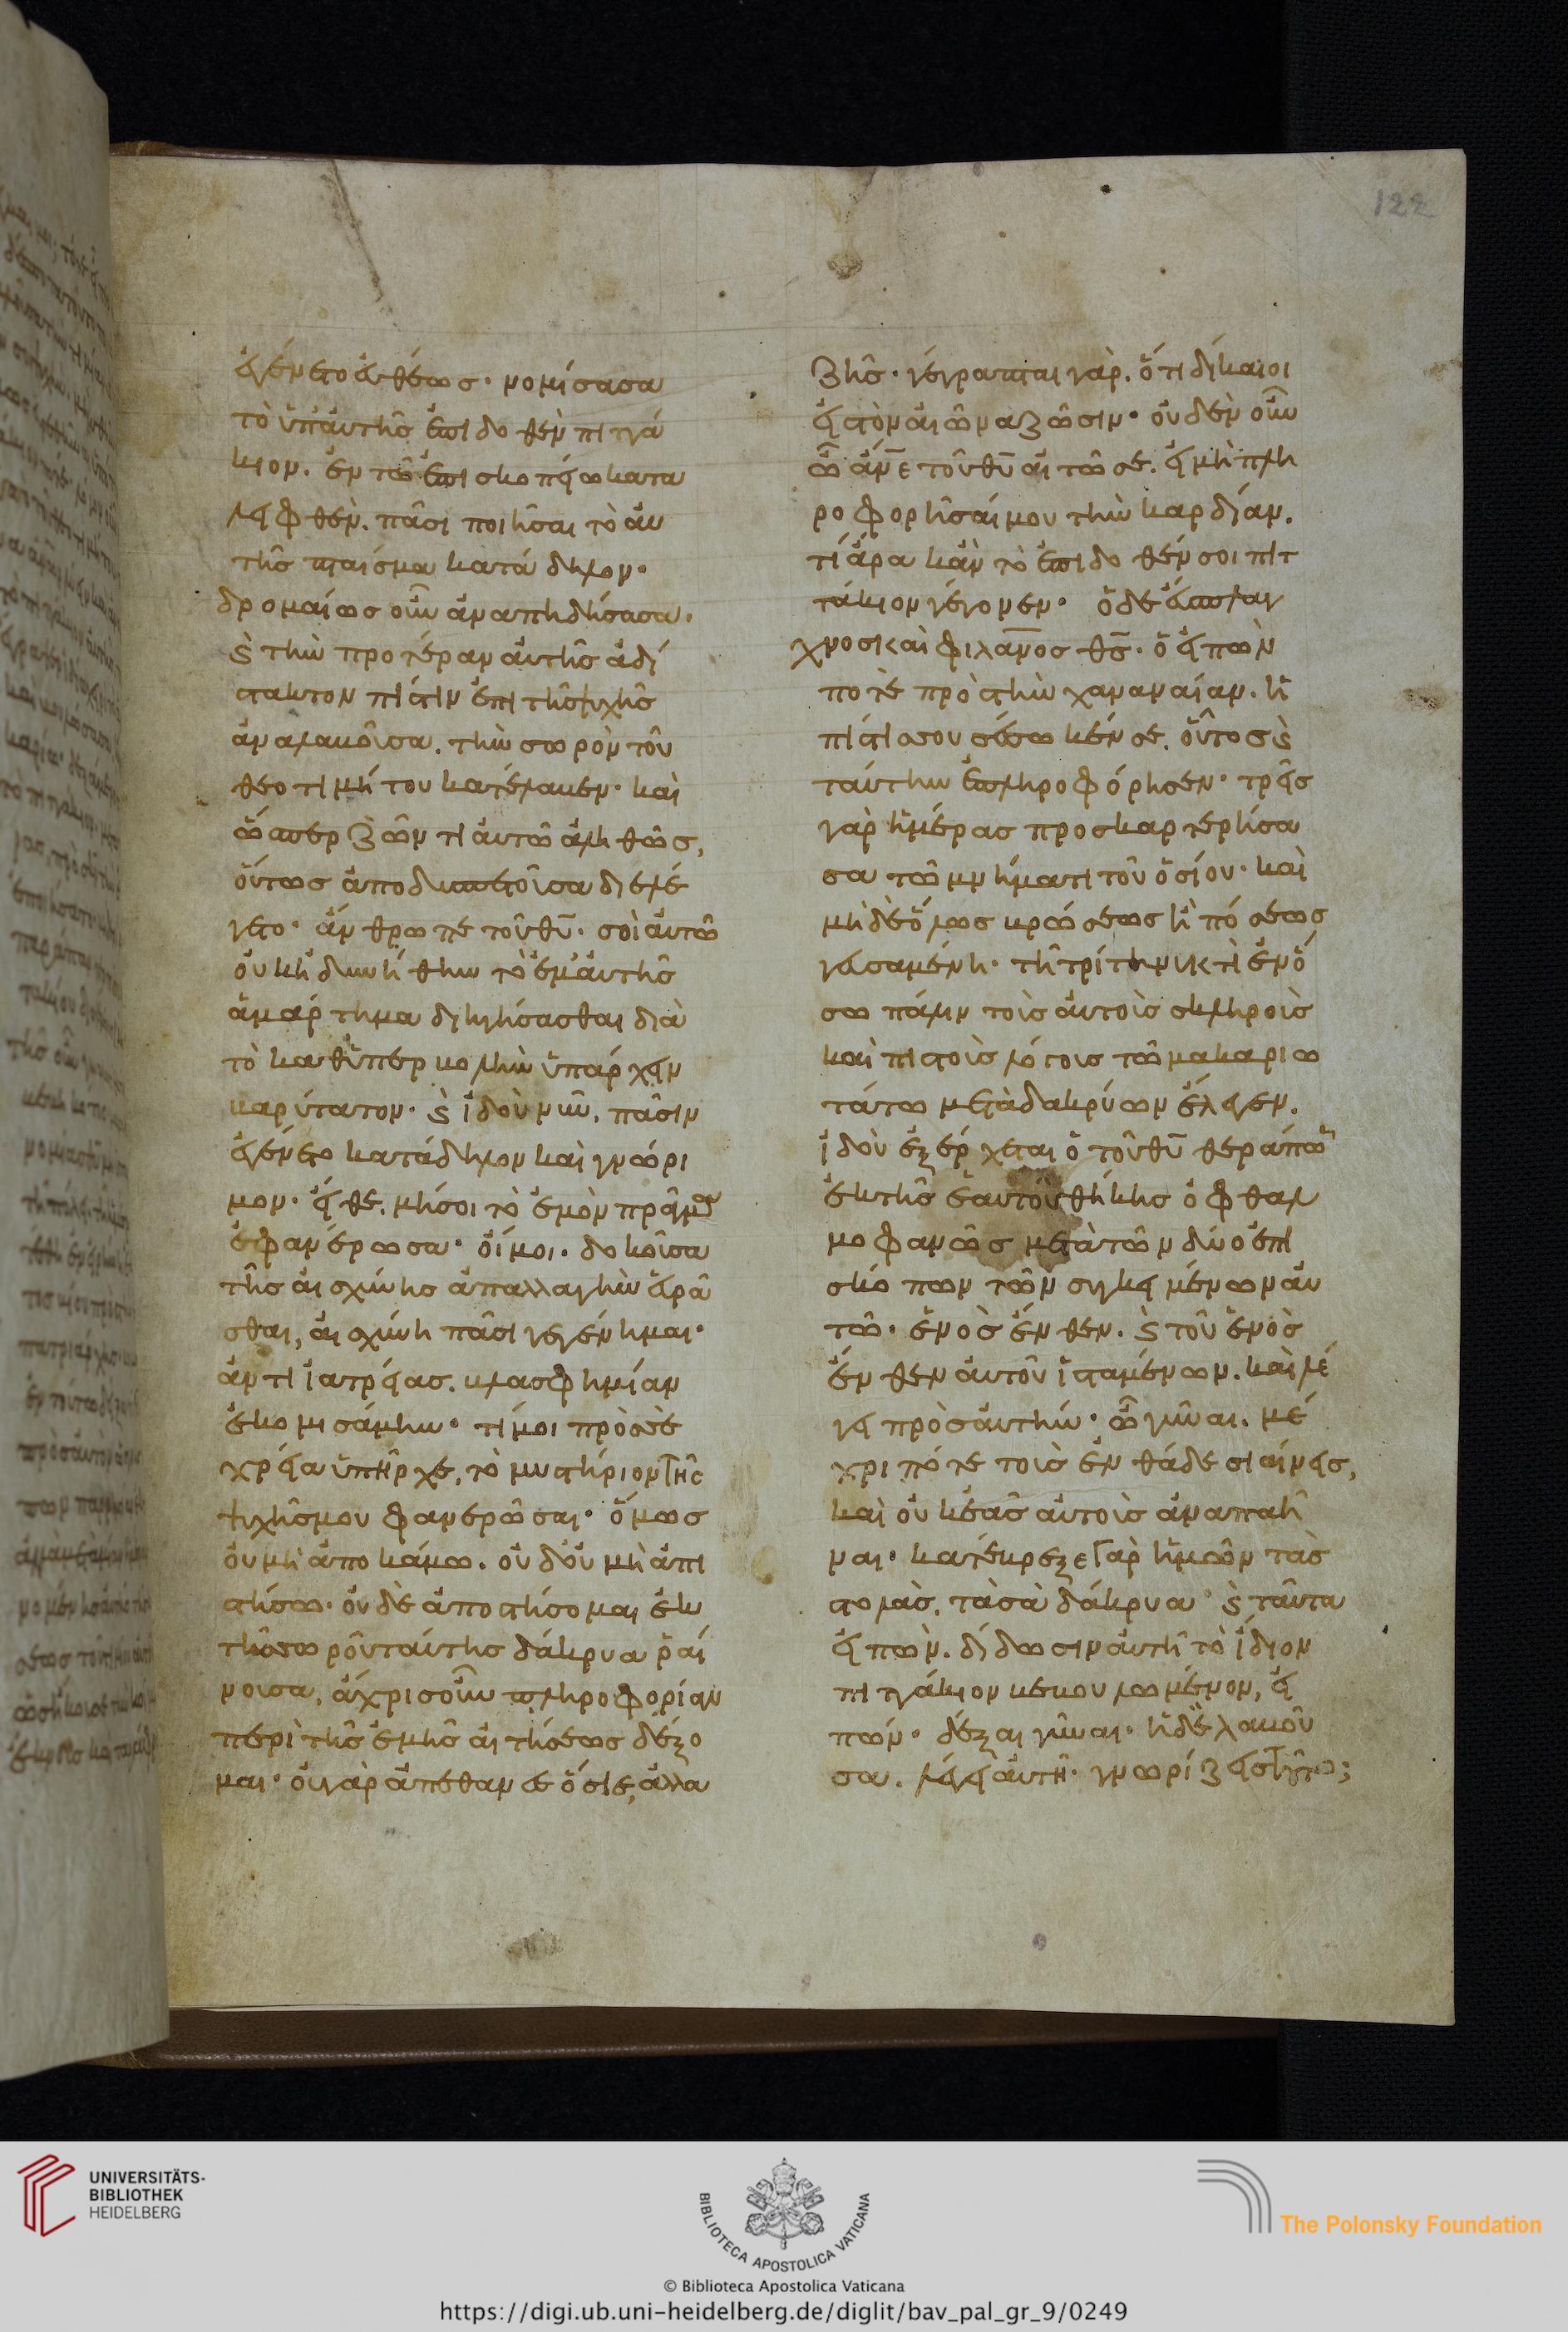 122
ἐγένετο εὐθέως· νομίσασα
τὸ ὑπ' αὐτῆς ἐπιδοθὲν πιττά
κιον. ἐν τῷ ἐπισκοπείω κατα
λειφθὲν. πᾶσι ποιῆσαι τὸ αὐ
τῆς πταίσμα κατάδηλον·
δρομαίως οὖν ἀναπηδήσασα.
ϗ τὴν προτέραν αὐτῆς ἀδί
στακτον πίστιν ἐπὶ τῆς ψυχῆς
ἀναλαβοῦσα. τὴν σωρὸν τοῦ
θεοτιμήτου κατέλαβεν· καὶ
ὥσπερ ζῶντι αὐτῶ ἀληθῶς,
οὕτως ἀποδυσπετοῦσα διελέ
γετο· ἄνθρωπε τοῦ θῦ· σοὶ αὐτῶ
οὐκ ἠδυνήθην τὸ ἐμαυτῆς
ἁμάρτημα διηγήσασθαι διὰ
τὸ καθ' ὑπερβολὴν ὑπάρχειν
βαρύτατον· ϗ ἰδοὺ νῦν, πᾶσιν
ἐγένετο κατάδηλον καὶ γνώρι
μον· εἴθε. μή σοι τὸ ἐμὸν πρᾶγμα
ἐφανέρωσα· οἴμοι. δοκοῦσα
τῆς αἰσχύνης ἀπαλλαγὴν εὑρᾶ
σθαι, αἰσχύνη πᾶσι γεγένημαι·
ἀντὶ ἰατρείας. βλασφημίαν
ἐκομισάμην· τί μοι πρὸς σὲ
χρεία ὑπῆρχε, τὸ μυστήριον τῆς
ψυχῆς μου φανερῶσαι· ὅμως
οὐ μὴ ἀποκάμω. οὐδ' οὐ μὴ ἀπι
στήσω· οὐδὲ ἀποστήσομαι ἐκ
τῆς σωροῦ ταύτης δάκρυα ῥαί
νουσα, ἄχρις οὖν πληροφορίαν
περὶ τῆς ἐμῆς αἰτήσεως δέξο
μαι· οὐ γὰρ ἀπέθανες ὅσιε, ἀλλὰ
ζῆς· γέγραπται γὰρ. ὅτι δίκαιοι
εἰς τὸν αἰῶνα ζῶσιν· οὐδὲν οὖν
ὦ ἄνε τοῦ θῦ αἰτῶ σε. εἰ μὴ πλη
ροφορῆσαί μου τὴν καρδίαν.
τί ἄρα κἂν τὸ ἐπιδοθέν σοι πιτ
τάκιον γέγονεν· ὁ δὲ εὔσπλαγ
χνος καὶ φιλάνος θς· ὁ εἰπὼν
ποτὲ πρὸς τὴν χαναναίαν. ἡ
πίστις σου σέσωκέν σε. οὗτος ϗ
ταύτην ἐπληροφόρησεν· τρεῖς
γὰρ ἡμέρας προσκαρτερήσα
σα τῶ μνήματι τοῦ ὁσίου· καὶ
μὴ δὲ ὅλως βρώσεως ἢ πόσεως
γευσαμένη· τῇ τρίτη νυκτὶ ἐν ὅ
σω πάλιν τοῖς αὐτοῖς σκληροῖς
καὶ πιστοῖς λόγοις τῶ μακαριω
τάτω μετὰ δακρύων ἔλεγεν.
ἰδοὺ ἐξέρχεται ὁ τοῦ θῦ θεράπων
ἐκ τῆς ἑαυτοῦ θήκης ὀφθαλ
μοφανῶς μετὰ τῶν δύο ἐπι
σκόπων τῶν συγκειμένων αὐ
τῶ· ἑνὸς ἔνθεν. ϗ τοῦ ἑνὸς
ἔνθεν αὐτοῦ ἱσταμένων. καὶ λέ
γει πρὸς αὐτήν· ὦ γύναι. μέ
χρι πότε τοῖς ἐνθάδε σιαίνεις,
καὶ οὐκ ἐᾶς αὐτοῖς ἀναπαῆ
ναι· κατέβρεξε γὰρ ἡμῶν τὰς
στολὰς. τὰ σὰ δάκρυα· ϗ ταῦτα
εἰπὼν. δίδωσιν αὐτῆ τὸ ἴδιον
πιττάκιον βεβουλωμένον, εἰ
πών· δέξαι γύναι· ἡ δὲ λαβοῦ
σα. λέγει αὐτῆ· γνωρίζεις τοῦτο;
UNIVERSITÄTS-
BIBLIOTHEK
HEIDELBERG
BIBLIOTECA APOSTOLICA VATICANA
The Polonsky Foundation
© Biblioteca Apostolica Vaticana
https://digi.ub.uni-heidelberg.de/diglit/bav_pal_gr_9/0249